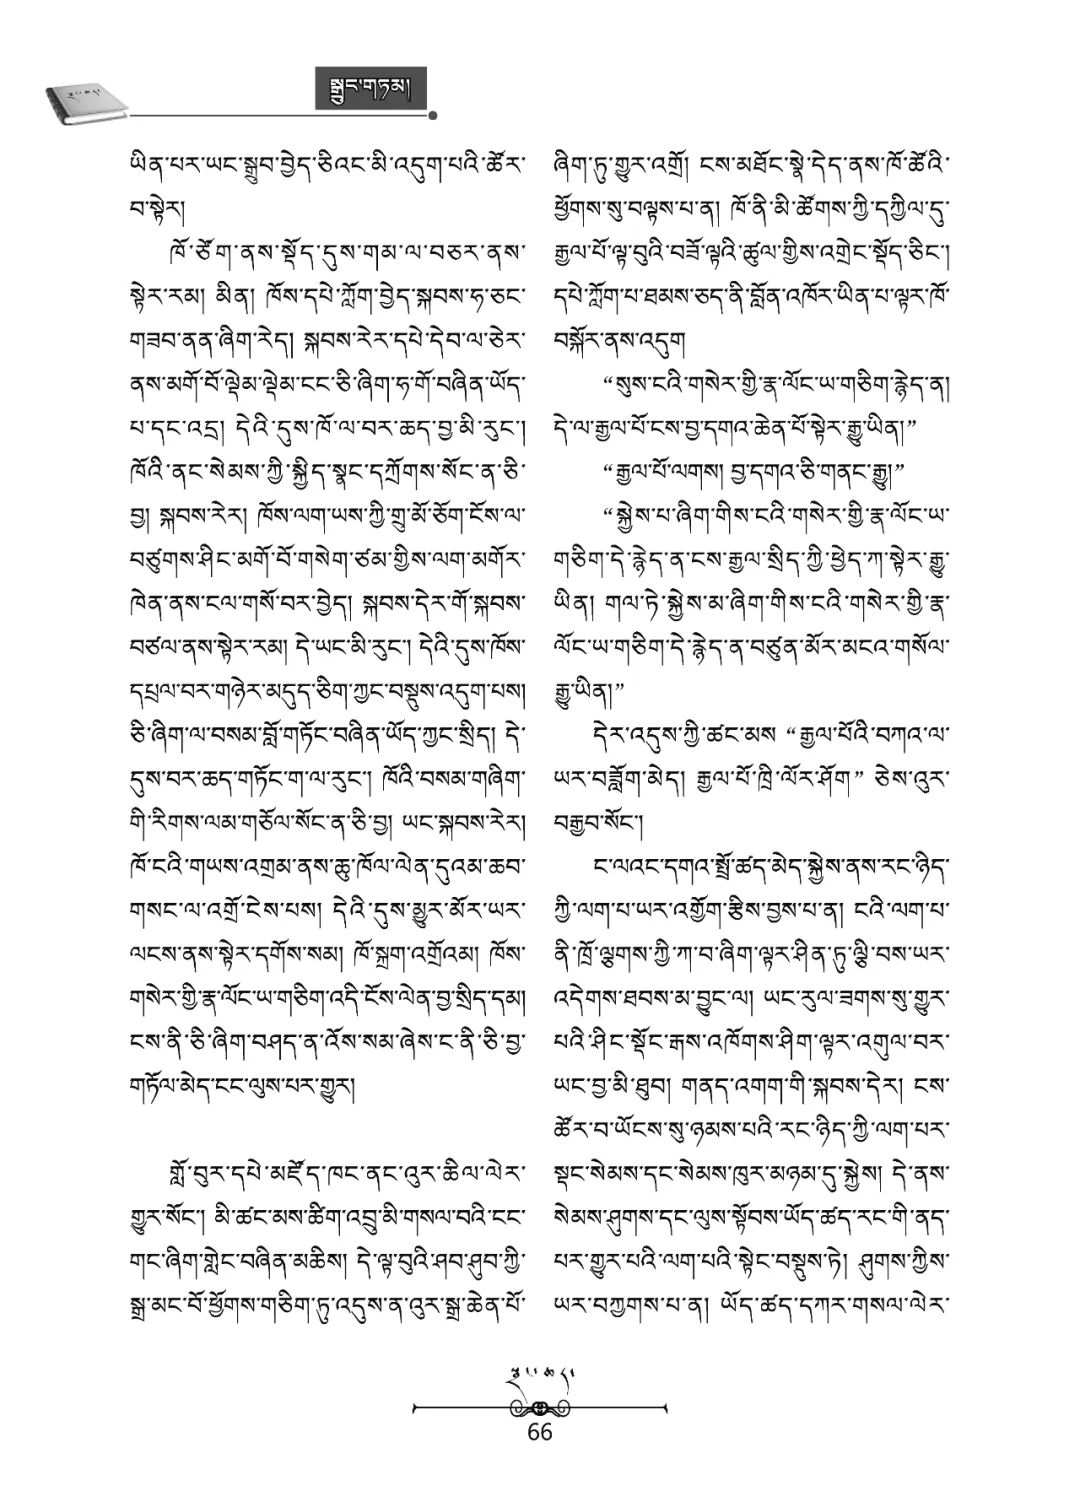 སྒྲུང་གཏམ།
ཡིན་པར་ཡང་སྒྲུབ་བྱེད་ཅིའང་མི་འདུག་པའི་ཚོར་
བ་སྟེར།
ཁོ་ཙོག་ནས་སྡོད་དུས་གམ་ལ་བཅར་ནས་
སྟེར་རམ། མིན། ཁོས་དཔེ་ཀློག་བྱེད་སྐབས་ཧ་ཅང་
གཟབ་ནན་ཞིག་རེད། སྐབས་རེར་དཔེ་དེབ་ལ་ཅེར་
ནས་མགོ་བོ་ལྡེམ་ལྡེམ་ངང་ཅི་ཞིག་ཧ་གོ་བཞིན་ཡོད་
པ་དང་འདྲ། དེའི་དུས་ཁོ་ལ་བར་ཆད་བྱ་མི་རུང་།
ཁོའི་ནང་སེམས་ཀྱི་སྐྱིད་སྣང་དཀྲོགས་སོང་ན་ཅི་
བྱ། སྐབས་རེར། ཁོས་ལག་ཡས་ཀྱི་གྲུ་མོ་ཅོག་ངོས་ལ་
བཙུགས་ཤིང་མགོ་བོ་གསེག་ཙམ་གྱིས་ལག་མགོར་
ཁེན་ནས་ངལ་གསོ་བར་བྱེད། སྐབས་དེར་གོ་སྐབས་
བཙལ་ནས་སྟེར་རམ། དེ་ཡང་མི་རུང་། དེའི་དུས་ཁོས་
དཔྲལ་བར་གཉེར་མདུད་ཅིག་ཀྱང་བསྡུས་འདུག་པས།
ཅི་ཞིག་ལ་བསམ་བློ་གཏོང་བཞིན་ཡོད་ཀྱང་སྲིད། དེ་
དུས་བར་ཆད་གཏོང་ག་ལ་རུང་། ཁོའི་བསམ་གཞིག་
གི་རིགས་ལམ་གཙོལ་སོང་ན་ཅི་བྱ། ཡང་སྐབས་རེར།
ཁོ་ངའི་གཡས་འགྲམ་ནས་ཆུ་ཁོལ་ལེན་དུའམ་ཆབ་
གསང་ལ་འགྲོ་ངེས་པས། དེའི་དུས་མྱུར་མོར་ཡར་
ལངས་ནས་སྟེར་དགོས་སམ། ཁོ་སྐྲག་འགྲོའམ། ཁོས་
གསེར་གྱི་རྣ་ལོང་ཡ་གཅིག་འདི་ངོས་ལེན་བྱ་སྲིད་དམ།
ངས་ནི་ཅི་ཞིག་བཤད་ན་འོས་སམ་ཞེས་ང་ནི་ཅི་བྱ་
གཏོལ་མེད་ངང་ལུས་པར་གྱུར།
གློ་བུར་དཔེ་མཛོད་ཁང་ནང་འུར་ཆིལ་ལེར་
གྱུར་སོང་། མི་ཚང་མས་ཚིག་འབྲུ་མི་གསལ་བའི་ངང་
གང་ཞིག་གླེང་བཞིན་མཆིས། དེ་ལྟ་བུའི་ཤབ་ཤུབ་ཀྱི་
སྒྲ་མང་བོ་ཕྱོགས་གཅིག་ཏུ་འདུས་ན་འུར་སྒྲ་ཆེན་པོ་
ཞིག་ཏུ་གྱུར་འགྲོ། ངས་མཐོང་སྣེ་དེད་ནས་ཁོ་ཚོའི་
ཕྱོགས་སུ་བལྟས་པ་ན། ཁོ་ནི་མི་ཚོགས་ཀྱི་དཀྱིལ་དུ་
རྒྱལ་པོ་ལྟ་བུའི་བཟོ་ལྟའི་ཚུལ་གྱིས་འགྲེང་སྡོད་ཅིང་།
དཔེ་ཀློག་པ་ཐམས་ཅད་ནི་བློན་འཁོར་ཡིན་པ་ལྟར་ཁོ་
བསྐོར་ནས་འདུག
“སུས་ངའི་གསེར་གྱི་རྣ་ལོང་ཡ་གཅིག་རྙེད་ན།
དེ་ལ་རྒྱལ་པོ་ངས་བྱ་དགའ་ཆེན་པོ་སྟེར་རྒྱུ་ཡིན།”
“རྒྱལ་པོ་ལགས། བྱ་དགའ་ཅི་གནང་རྒྱུ།”
“སྐྱེས་པ་ཞིག་གིས་ངའི་གསེར་གྱི་རྣ་ལོང་ཡ་
གཅིག་དེ་རྙེད་ན་ངས་རྒྱལ་སྲིད་ཀྱི་ཕྱེད་ཀ་སྟེར་རྒྱུ་
ཡིན། གལ་ཏེ་སྐྱེས་མ་ཞིག་གིས་ངའི་གསེར་གྱི་རྣ་
ལོང་ཡ་གཅིག་དེ་རྙེད་ན་བཙུན་མོར་མངའ་གསོལ་
རྒྱུ་ཡིན།”
དེར་འདུས་ཀྱི་ཚང་མས “རྒྱལ་པོའི་བཀའ་ལ་
ཡར་བཟློག་མེད། རྒྱལ་པོ་ཁྲི་ལོར་ཤོག” ཅེས་འུར་
བརྒྱབ་སོང་།
ང་ལའང་དགའ་སྤྲོ་ཚད་མེད་སྐྱེས་ནས་རང་ཉིད་
ཀྱི་ལག་པ་ཡར་འགྱོག་རྩིས་བྱས་པ་ན། ངའི་ལག་པ་
ནི་ཁྲོ་ལྕགས་ཀྱི་ཀ་བ་ཞིག་ལྟར་ཤིན་ཏུ་ལྕི་བས་ཡར་
འདེགས་ཐབས་མ་བྱུང་ལ། ཡང་རུལ་ཟགས་སུ་གྱུར་
པའི་ཤིང་སྡོང་རྒས་འཁོགས་ཤིག་ལྟར་འགུལ་བར་
ཡང་བྱ་མི་ཐུབ། གནད་འགག་གི་སྐབས་དེར། ངས་
ཚོར་བ་ཡོངས་སུ་ཉམས་པའི་རང་ཉིད་ཀྱི་ལག་པར་
སྡང་སེམས་དང་སེམས་ཁུར་མཉམ་དུ་སྐྱེས། དེ་ནས་
སེམས་ཤུགས་དང་ལུས་སྟོབས་ཡོད་ཚད་རང་གི་ནད་
པར་གྱུར་པའི་ལག་པའི་སྟེང་བསྡུས་ཏེ། ཤུགས་ཀྱིས་
ཡར་བཀྱགས་པ་ན། ཡོད་ཚད་དཀར་གསལ་ལེར་
66